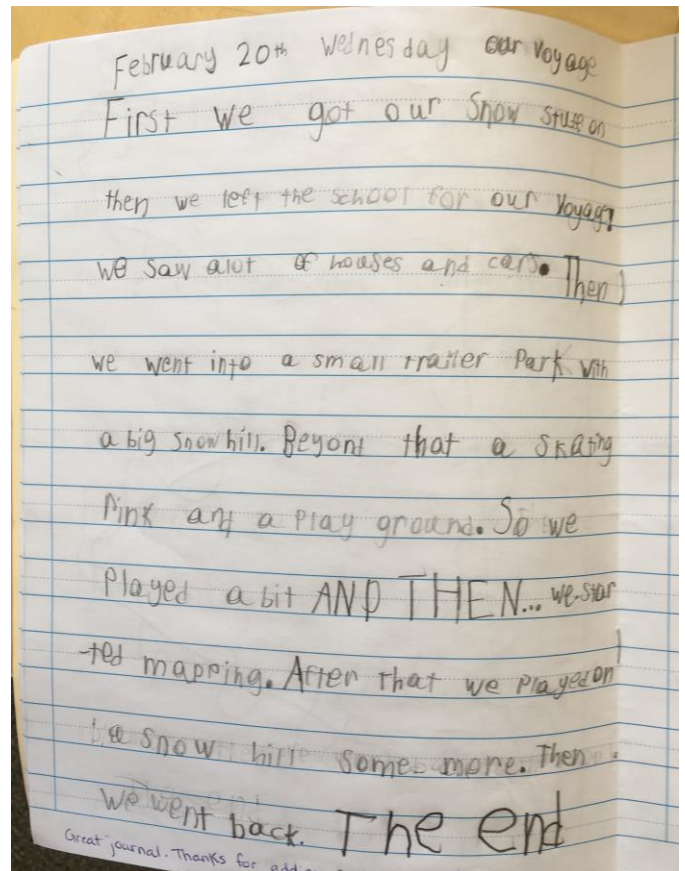 February 20th Wednesday our Voyage
First we got our Snow stuff on
then we left the school for our Voyage
we saw alot of houses and cars. Then
we went into a small trailer Park with
a big snow hill. Beyond that a skating
Rink and a Play ground. So we
Played a bit AND THEN... we star
-ted mapping. After that we played on
a snow hill some more. Then
we went back. The end
Great journal. Thanks for